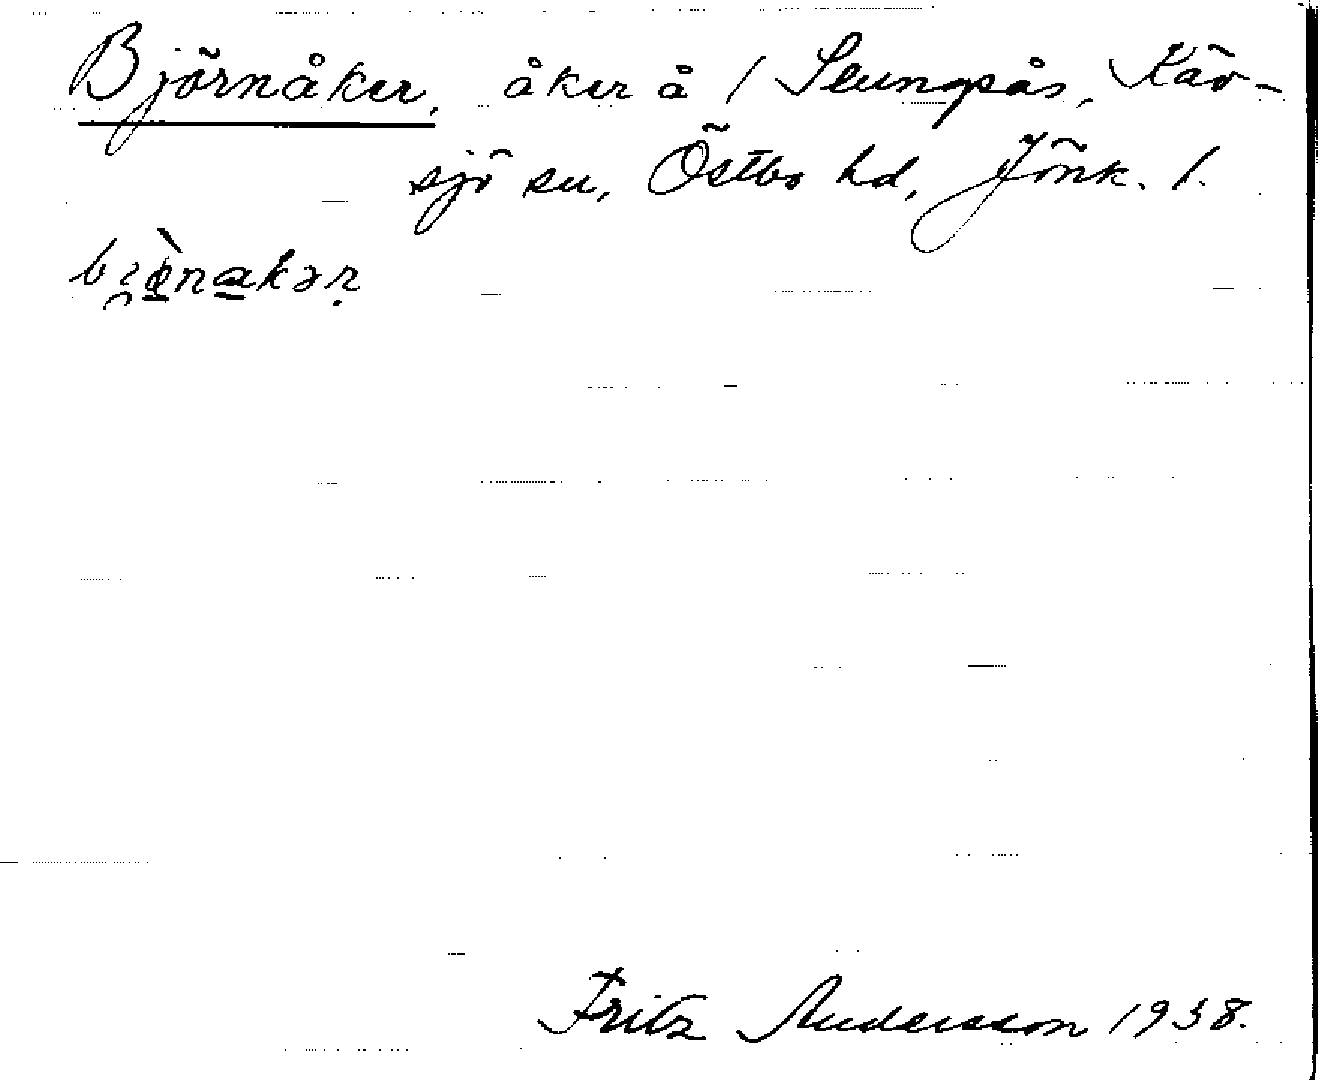 Björnåker, åker å / Slungsås, Käv-
sjö sn, Östbo hd, Jönk. l.
Fritz Andersson 1938.